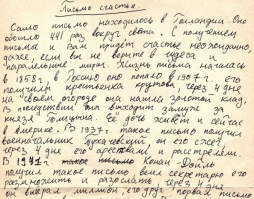 Письмо счастья
Само письмо находилось в Голландии. Оно
обошло 441 раз вокруг света. С получением
письма к Вам придёт счастье неожиданно,
даже, если вы не верите в чудеса и
параллельные миры. Жизнь письма началась
в 1858 г. в Россию оно попало в 1907 г. его
получила крестьянка Крутова, через 4 дня
на своём огороде она нашла золотой клад.
В последствии она вышла замуж за
князя Голицына. Её дочь живёт и сейчас
в Америке. В 1937 г. такое письмо получил
военачальник Тухачевский, он его сжёг
через 4 дня его арестовали и расстреляли.
В Конан-Дойль
получил такое письмо, велел секретарю его
размножить и разослать, через 4 дня
он выиграл миллион, его друг порвал письмо